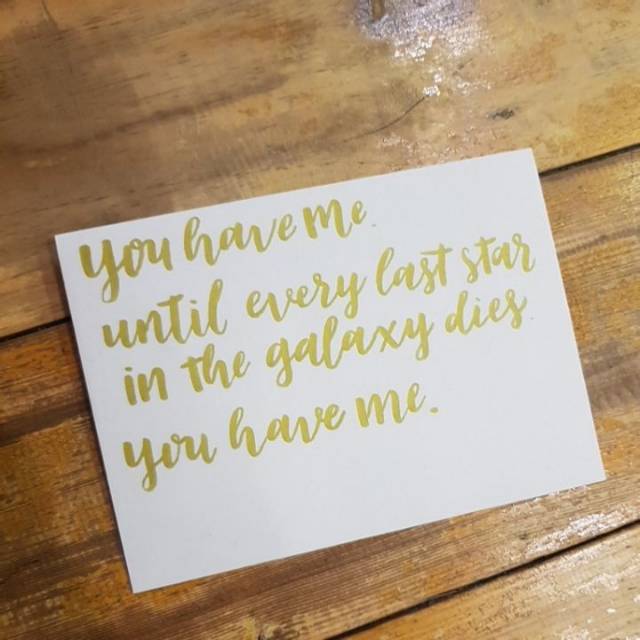 you have me.
until every last star
in the galaxy dies.
you have me.